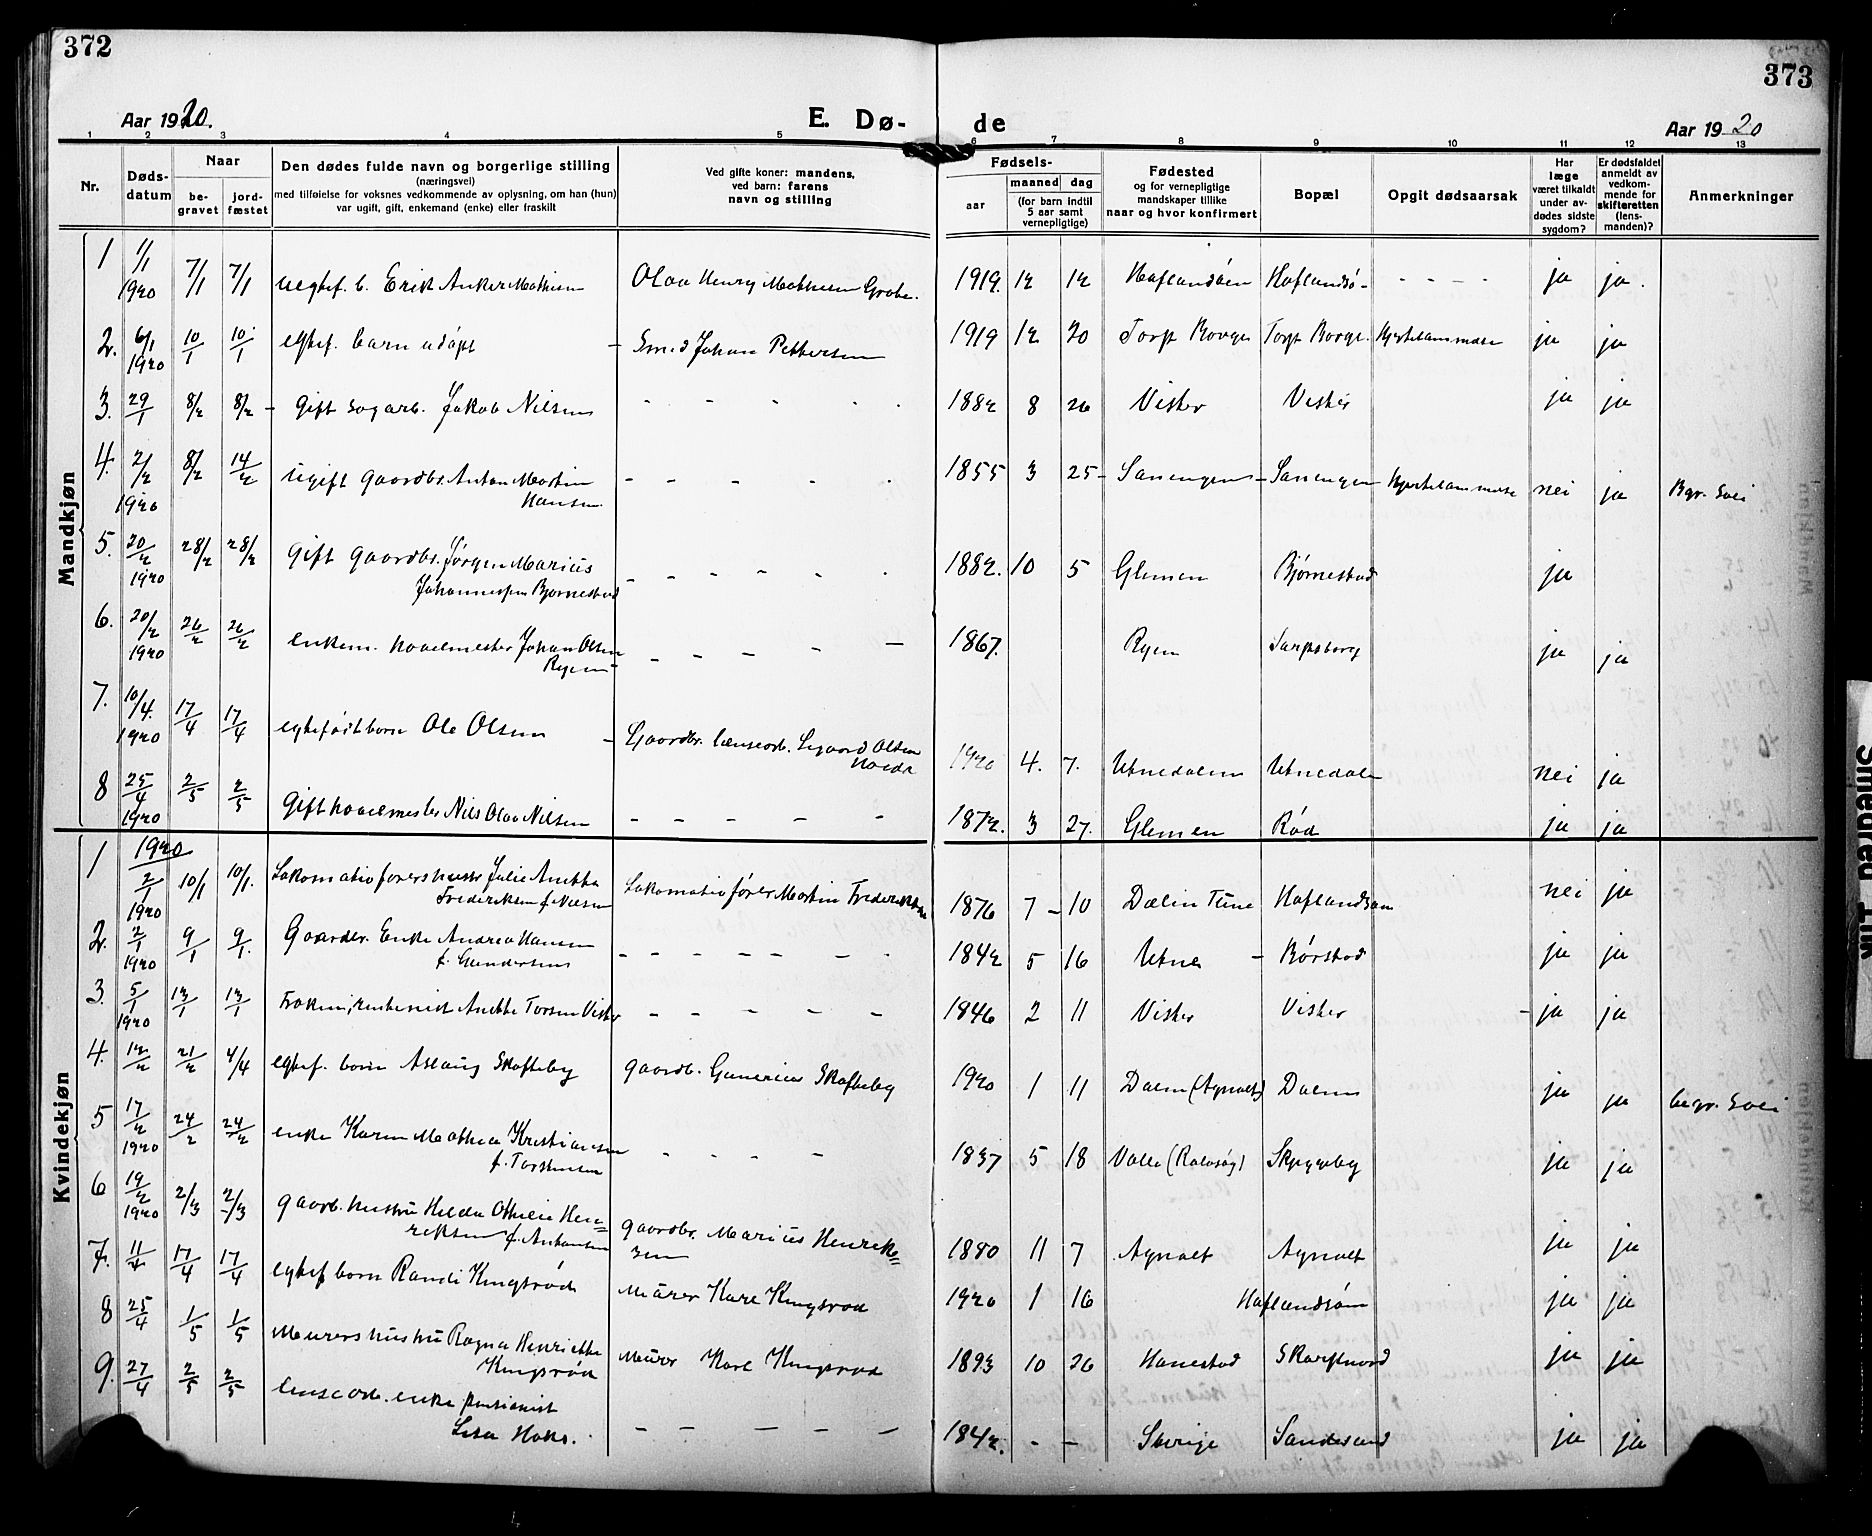 372
373
Aar 1920.
E. Dø-
de
Aar 1920
1 2 3 4 5 6 7 8 9 10 11 12 13
Nr.
Døds-
datum
Naar
be-
gravet
jord-
fæstet
Den dødes fulde navn og borgerlige stilling
(næringsvei)
med tilføielse for voksnes vedkommende av oplysning, om han (hun)
var ugift, gift, enkemand (enke) eller fraskilt
Ved gifte koner: mandens,
ved barn: farens
navn og stilling
Fødsels-
aar
maaned dag
(for barn indtil
5 aar samt
vernepligtige)
Fødested
og for vernepligtige
mandskaper tillike
naar og hvor konfirmert
Bopæl
Opgit dødsaarsak
Har
læge
været tilkaldt
under av-
dødes sidste
sygdom?
Er dødsfaldet
anmeldt av
vedkom-
mende for
skifteretten
(lens-
manden)?
Anmerkninger
Mandkjøn
1 1/1 1920 7/1 7/1 uegtef. b. Erik Anker Mathisen Olaa Henry Mathisen Grobe. 1919. 12 12 Haflandsöen Haflandsö - - - - ja ja.
2. 6/1 1920 10/1 10/1 egtef. barn udøpt - Smed Johan Pettersen 1919 12 20 Torp Borge Torp Borge. Hjertelammelse ja ja
3. 29/1 8/2 8/2 - gift sagarb. Jakob Nilsen - - - - - 1882 8 26 Visther Visther ja ja
4. 2/2 1920 8/2 14/2 ugift gaardbr. Anton Martin
Hansen - - - - - 1855 3 25 - Sanengen - Sanengen Hjertelammelse nei ja Bgr. Soli
5. 20/2 1920 28/2 28/2 gift gaardbr. Jørgen Marius
Johannessen Bjørnestad - - - - - - 1882. 10 5 Glemen Bjørnestad ja
6. 20/2 1920 26/2 26/2 enkem. hovelmester Johan Olsen
Ryen - - - - - - 1867. Ryen Sarpsborg ja ja
7. 10/4. 1920 17/4 17/4 egtefødt barn Ole Olsen - Gaardbr. lænsearb. Sigaard Olsen
1920 4. 7. Utnedalen Utnedalen nei ja
8 25/4 1920 2/5 2/5 gift hovelmester Nils Olav Nilsen - - - - - 1872. 3 27. Glemen Rød ja ja
Kvindekjøn
1920
1 2/1 1920 10/1 10/1. Lokomativførers hustr Julie Anette
Frederiksen f. Nilsen Lokomativfører Martin Frederiksen 1876 7 - 10 Dælin Tune Haflandsøen nei ja
2. 2/1 1920 9/1 9/1. Gaardbr. Enke Andrea Hansen
f. Gundersen - - - - - - - 1842 5 16 Utne - Børstad ja ja
3. 5/1 1920 13/1 13/1 Frøken, rentenist Anette Torsen Visther - - - - - - 1846 2 11 Visther Visther - ja ja
4. 12/2 21/2 4/4 egtef. barn Aslaug Skofteby gaardb. Gunerius Skofteby 1920 1 11 Dalen (Agnalt) Dalen ja ja begr. Soli
5 17/2 1920 24/2 24/2 enke Karen Mathea Kristiansen
f. Torstensen - - - - - 1837 5 18 Valle (Rolvsøy) Skpyrby ja ja
6 19/2 1920 2/3 2/3 gaarb. hustru Hilda Othilie Hen=
riksen f. Antonsen gaardbr. Marius Henrik=
sen 1880 11 7 Agnalt Agnalt ja ja
7. 11/4 17/4 17/4 egtef barn Randi Kingsrød Murer Karl Kingsrød 1920 1 16 Haflandsøen ja ja
8 25/4 1/5 1/5 Murers hustru Ragna Henriette
Kingsrød Murer Karl Kingsrød 1893 10 26 Hanestad Skarpnord ja ja
9. 27/4 2/5 2/5 lensearb. enke pensionist
Lisa Hoks. - - - - - 1842. - - Sverige Sandesund ja ja